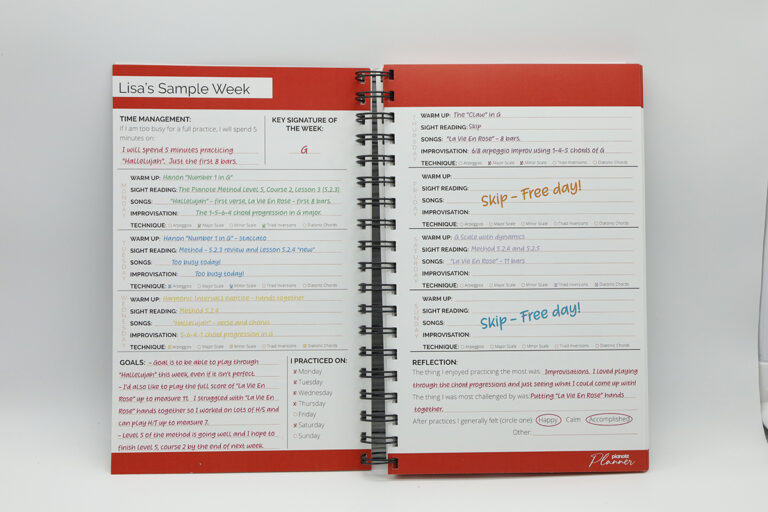 Lisa's Sample Week
TIME MANAGEMENT:
If I am too busy for a full practice, I will spend 5
minutes on:
I will spend 5 minutes practicing
"Hallelujah". Just the first 8 bars.
KEY SIGNATURE OF
THE WEEK:
G
MONDAY
WARM UP: Hanon "Number 1 in G"
SIGHT READING: The Pianote Method Level 5, Course 2, Lesson 3 (5.2.3)
SONGS: "Hallelujah" - first verse, La Vien Rose - first 8 bars.
IMPROVISATION: The 1-5-6-4 chord progression in G major.
TECHNIQUE: Arpeggios Major Scale Minor Scale Triad Inversions Diatonic Chords
TUESDAY
WARM UP: Hanon "Number 1 in G" - staccato
SIGHT READING: Method - 5.2.3 review and Lesson 5.2.4 "new"
SONGS: Too busy today!
IMPROVISATION: Too busy today!
TECHNIQUE: Arpeggios Major Scale Minor Scale Triad Inversions Diatonic Chords
WEDNESDAY
WARM UP: Harmonic Intervals exercise - hands together
SIGHT READING: Method 5.2.4
SONGS: "Hallelujah" - verse and chorus
IMPROVISATION: 5-6-4-1 chord progression in G
TECHNIQUE: Arpeggios Major Scale Minor Scale Triad Inversions Diatonic Chords
GOALS: - Goal is to be able to play through
"Hallelujah" this week, even if it isn't perfect.
- I'd also like to play the full score of "La Vie En
Rose" up to measure 11. I struggled with "La Vie En
Rose" hands together so I worked on lots of H/S and
can play H/T up to measure 7.
- Level 5 of the method is going well and I hope to
finish level 5, course 2 by the end of next week.
I PRACTICED ON:
x Monday
x Tuesday
x Wednesday
x Thursday
Friday
x Saturday
Sunday
THURSDAY
WARM UP: The "Claw" in G
SIGHT READING: Skip
SONGS: "La Vie En Rose" - 8 bars.
IMPROVISATION: 6/8 arpeggio improv using 1-4-5 chords of G
TECHNIQUE: Arpeggios Major Scale Minor Scale Triad Inversions Diatonic Chords
FRIDAY
WARM UP:
SIGHT READING:
Skip - Free day!
SONGS:
IMPROVISATION:
TECHNIQUE: Arpeggios Major Scale Minor Scale Triad Inversions Diatonic Chords
SATURDAY
WARM UP: G Scale with dynamics
SIGHT READING: Method 5.2.4 and 5.2.5
SONGS: "La Vie En Rose" - 11 bars
IMPROVISATION:
TECHNIQUE: Arpeggios Major Scale Minor Scale Triad Inversions Diatonic Chords
SUNDAY
WARM UP:
SIGHT READING:
Skip - Free day!
SONGS:
IMPROVISATION:
TECHNIQUE: Arpeggios Major Scale Minor Scale Triad Inversions Diatonic Chords
REFLECTION:
The thing I enjoyed practicing the most was: Improvisations. I loved playing
through the chord progressions and just seeing what I could come up with!
The thing I was most challenged by was: Putting "La Vie En Rose" hands
together.
After practices I generally felt (circle one): Happy Calm Accomplished
Other:
pianote
Planner